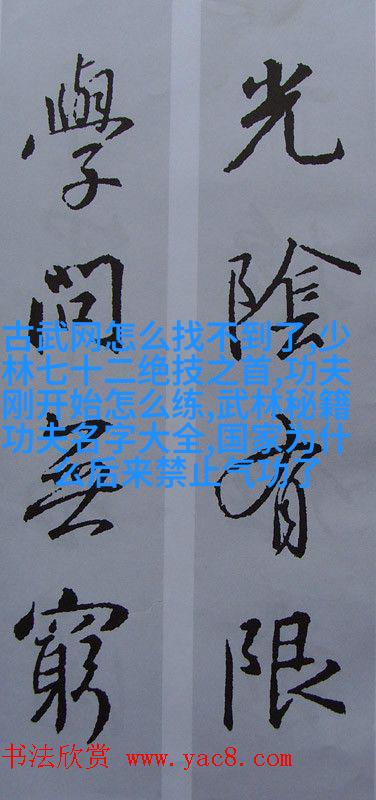 光陰有限
學問無窮
古武网怎么找不到了,少
林七十二绝技之首,功夫
刚开始怎么练,武林秘籍
功夫名字大全,国家为什
么后来禁止气功了
书法欣赏 www.yac8.com